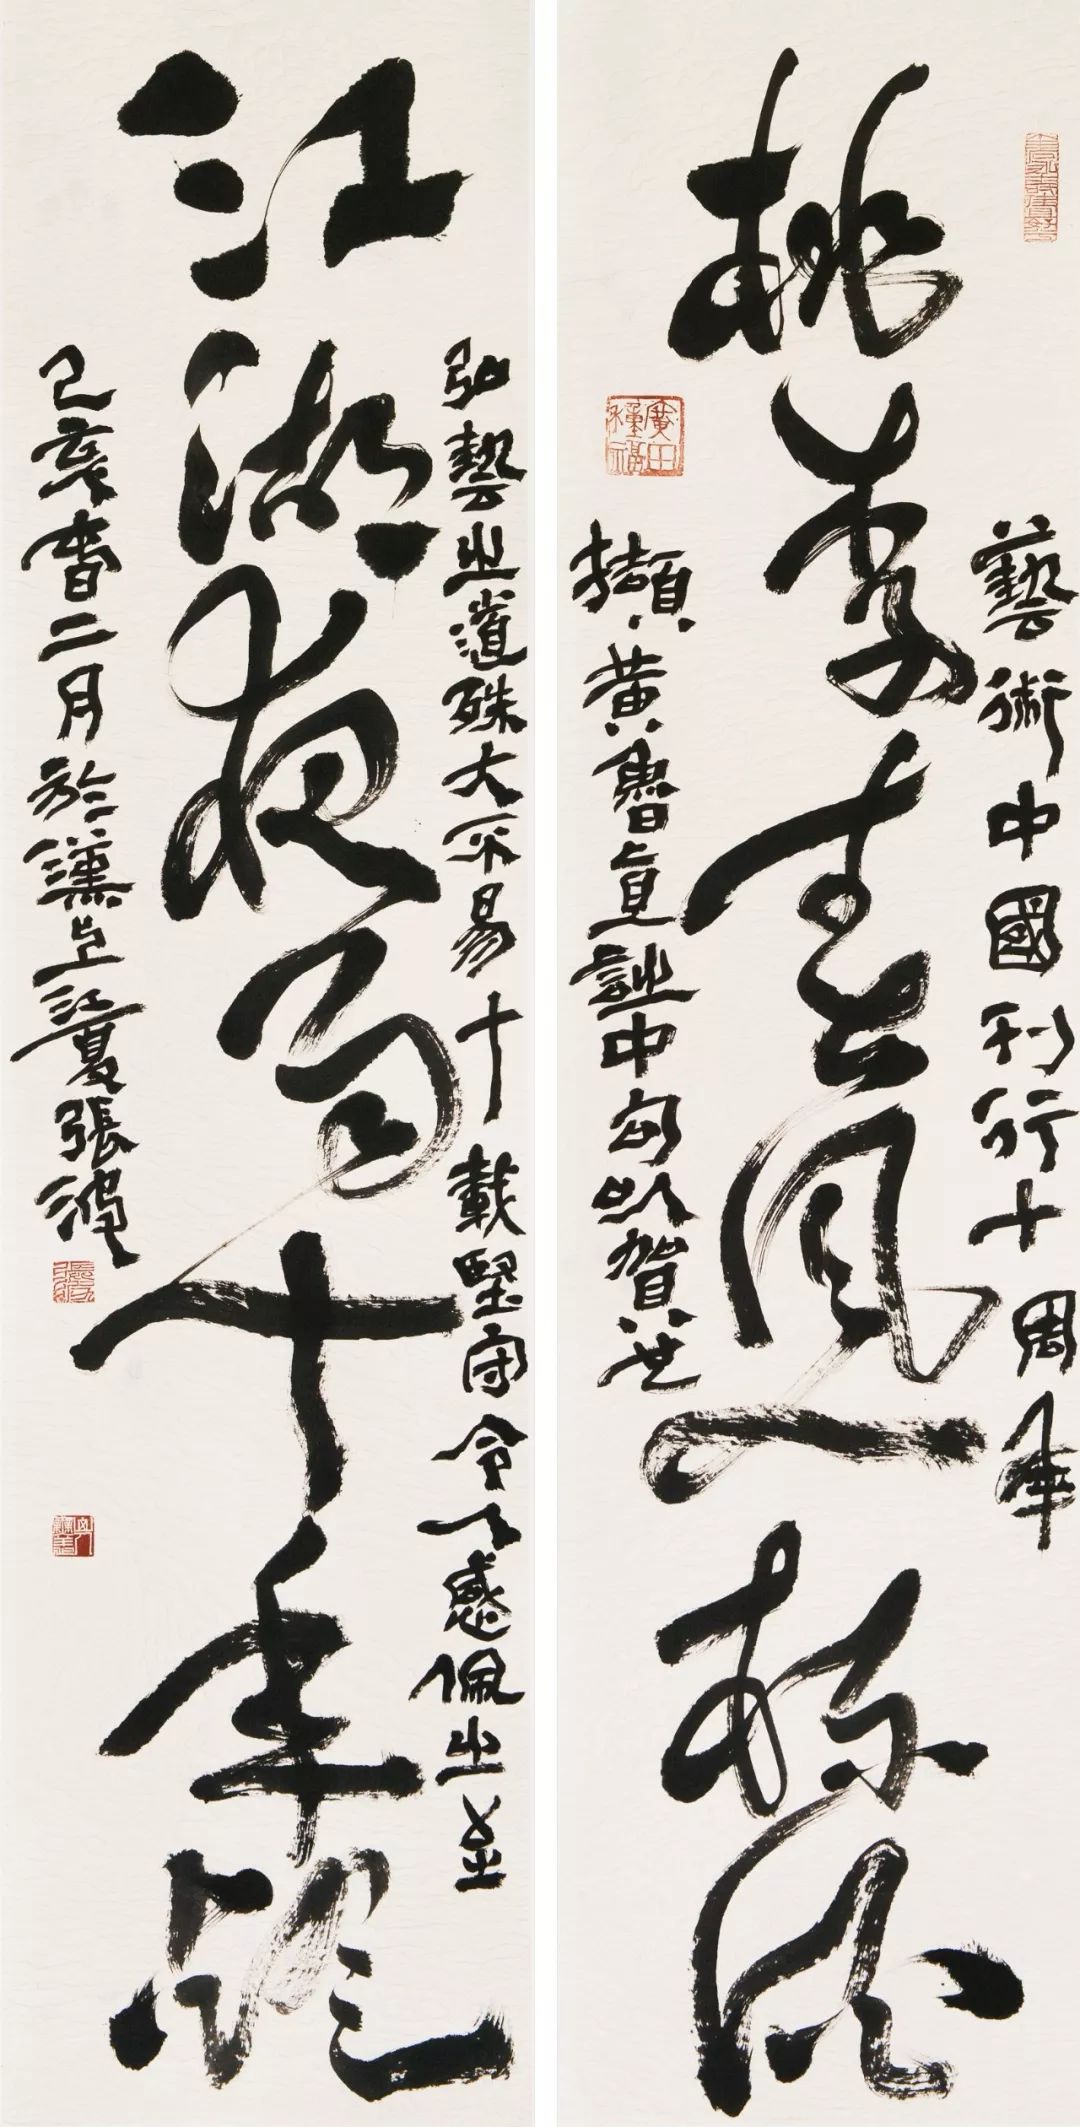 藝術中國刊行十周年
桃李春風一杯酒
廣種福田
擷黃魯直詩中句以賀
弘藝之道殊大不易十載堅守令人感佩之至
江湖夜雨十年燈
己亥春二月於漢上江夏張波